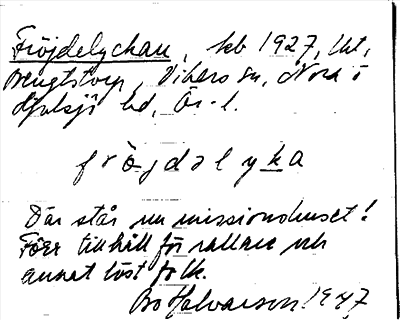 Fröjdelyckan, keb 1927, lht,
Bengtstorp, Vikers sn, Nora o
Hjulsjö hd, Ör. l.
frö̀jdəlyka
Där står nu missionshuset!
Förr tillhåll för rallare och
annat löst folk.
Bo Halvarson 1947